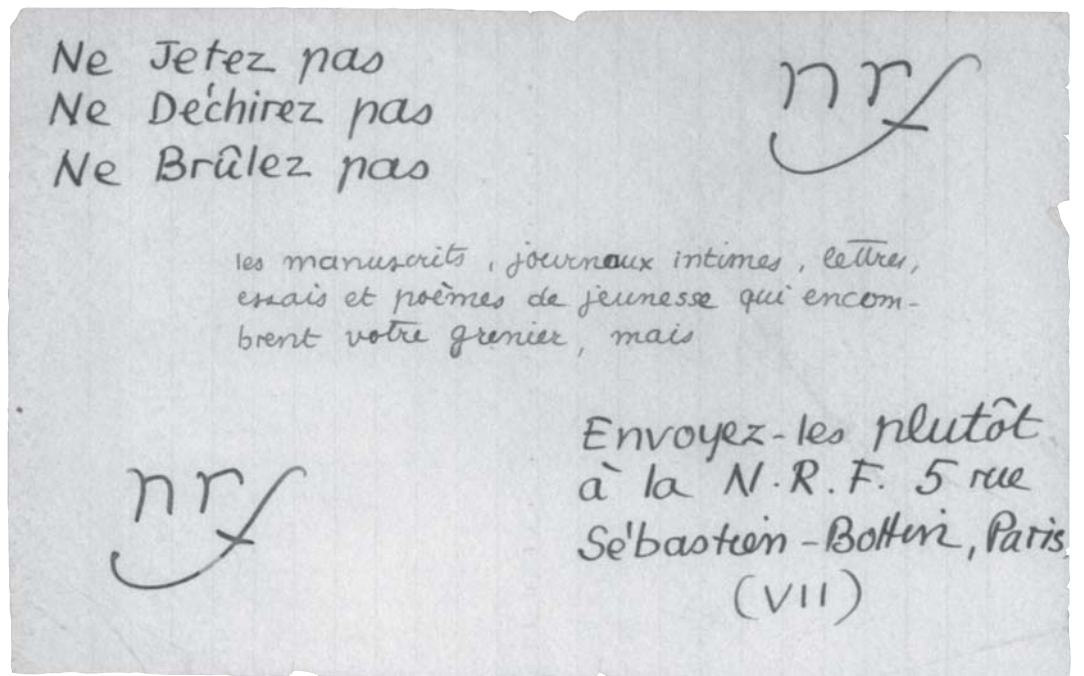 Ne Jetez pas
Ne Déchirez pas
Ne Brûlez pas
nrf
les manuscrits, journaux intimes, lettres,
essais et poèmes de jeunesse qui encom-
brent votre grenier, mais
Envoyez-les plutôt
à la N.R.F. 5 rue
Sébastien-Bottin, Paris
(VII)
nrf